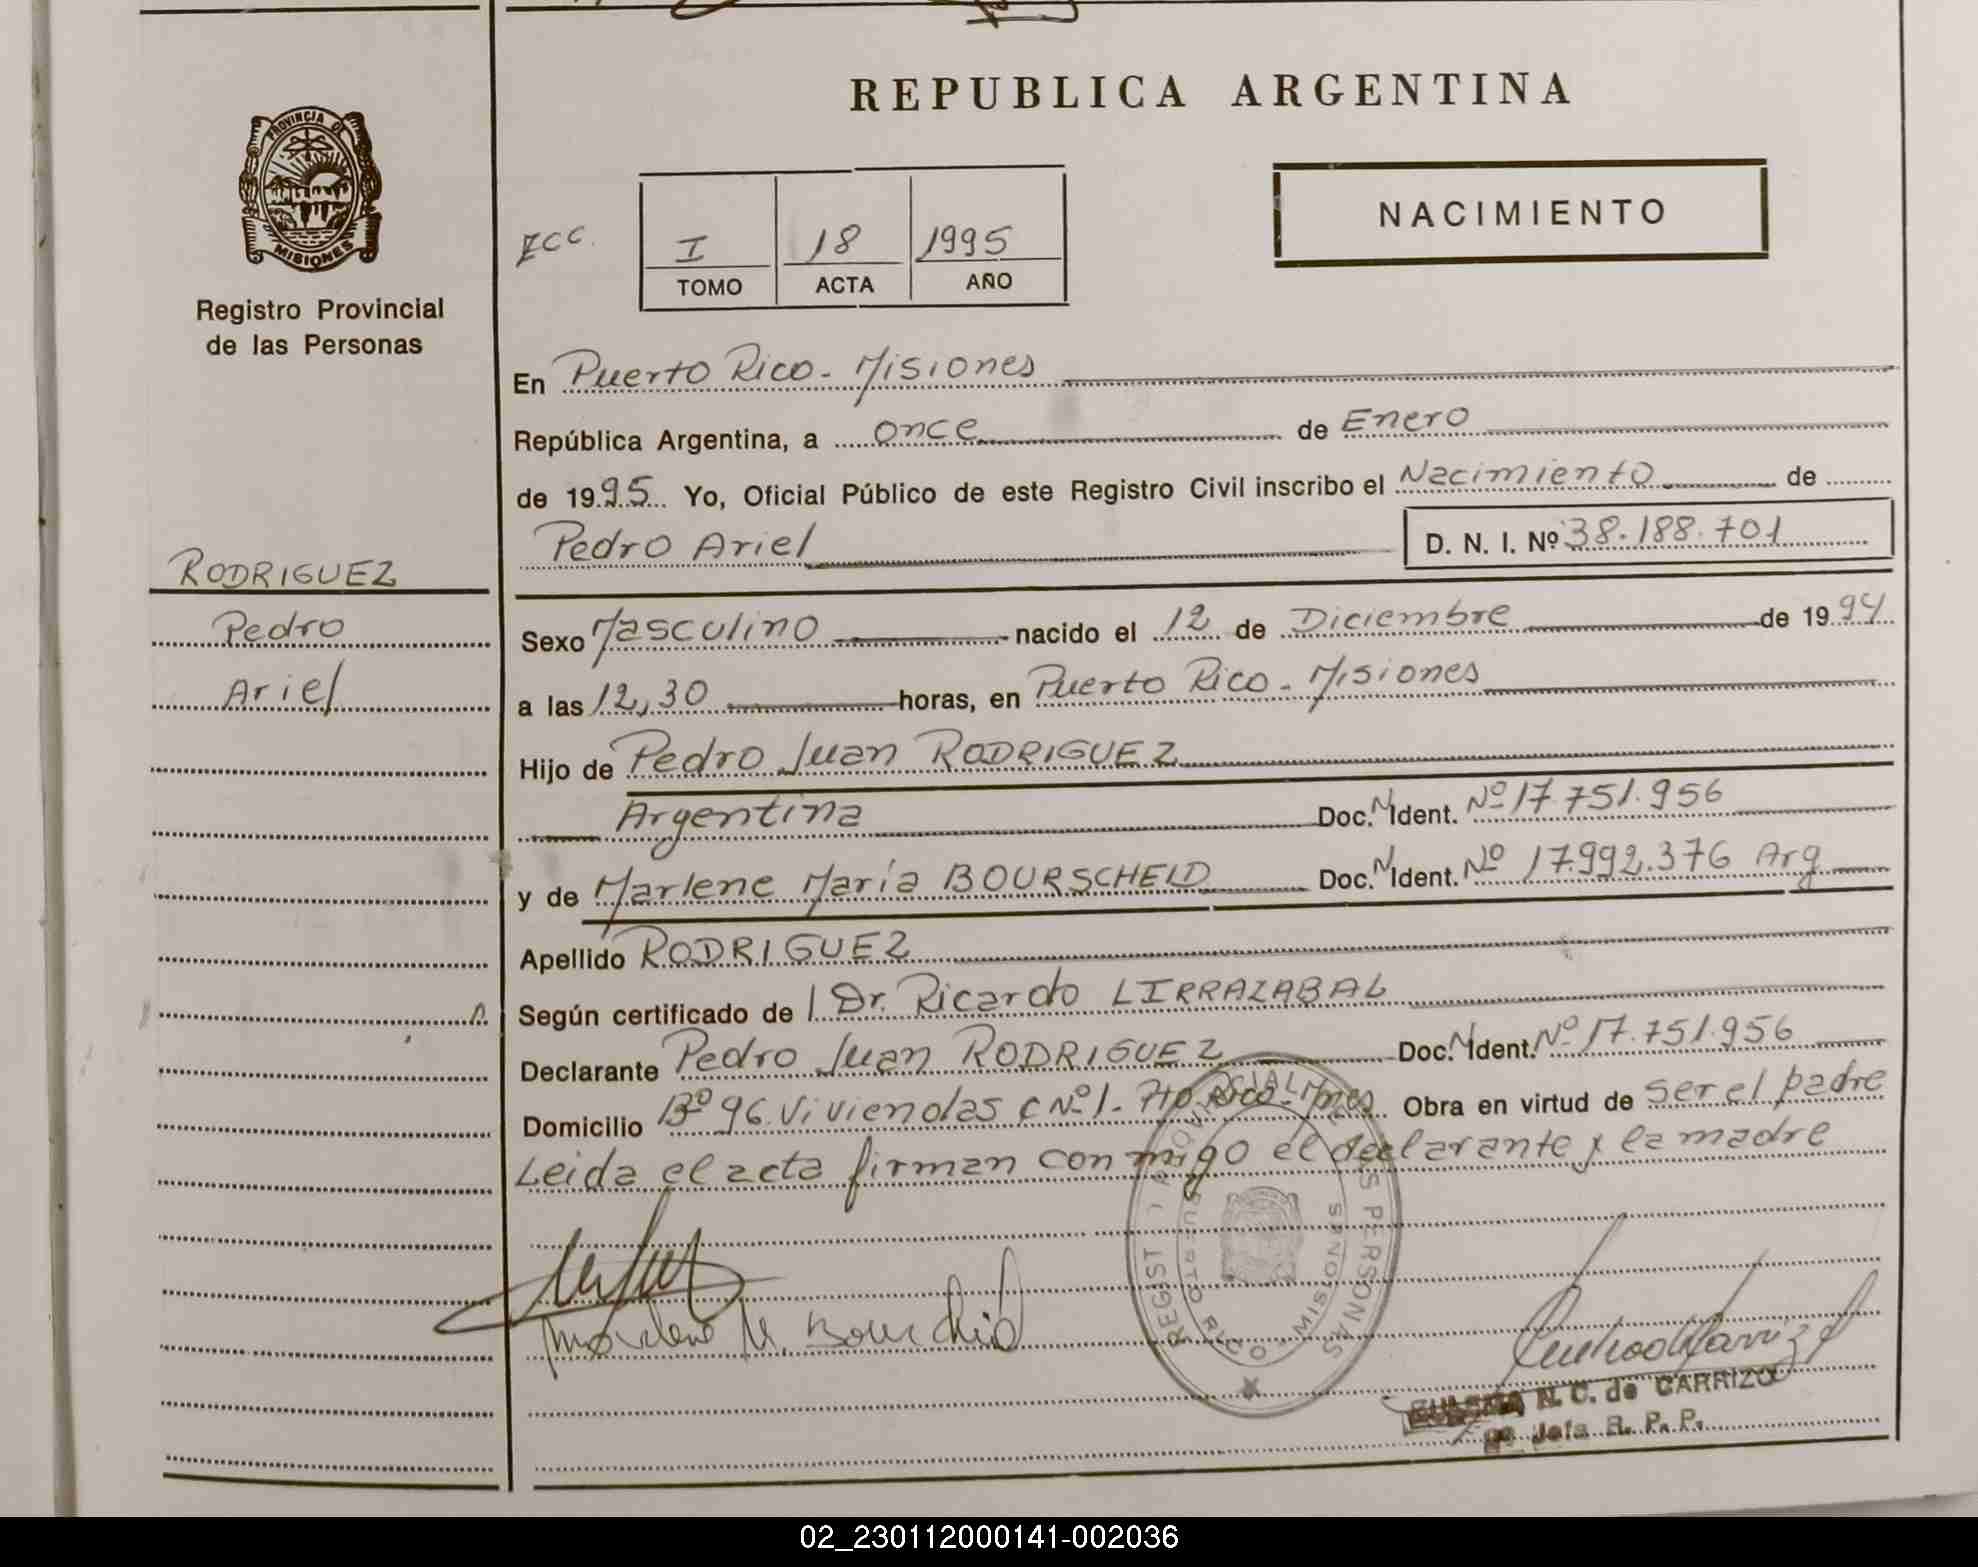 REPUBLICA ARGENTINA
PROVINCIA DE
MISIONES
Registro Provincial
de las Personas
I 18 1995
TOMO ACTA AÑO
NACIMIENTO
En Puerto Rico - Misiones
República Argentina, a once de Enero
de 1995 Yo, Oficial Público de este Registro Civil inscribo el Nacimiento de
Pedro Ariel D. N. I. Nº 38.188.701
RODRIGUEZ
Pedro
Ariel
Sexo Masculino nacido el 12 de Diciembre de 1994
a las 12,30 horas, en Puerto Rico - Misiones
Hijo de Pedro Juan RODRIGUEZ
Argentina Doc. N. Ident. Nº 17.751.956
y de Marlene María BOURSCHEID Doc. N. Ident. Nº 17.992.376 Arg
Apellido RODRIGUEZ
Según certificado de Dr. Ricardo LIRRAZABAL
Declarante Pedro Juan RODRIGUEZ Doc. N. Ident. Nº 17.751.956
Domicilio Bº 96 Viviendas c Nº 1 - Pto Rico - Mnes Obra en virtud de ser el padre
Leida el acta firman conmigo el declarante y la madre
Marlene M. Bourscheid
PUERTO RICO - MISIONES
N. C. de CARRIZO
Jefa R. P. P.
02_230112000141-002036